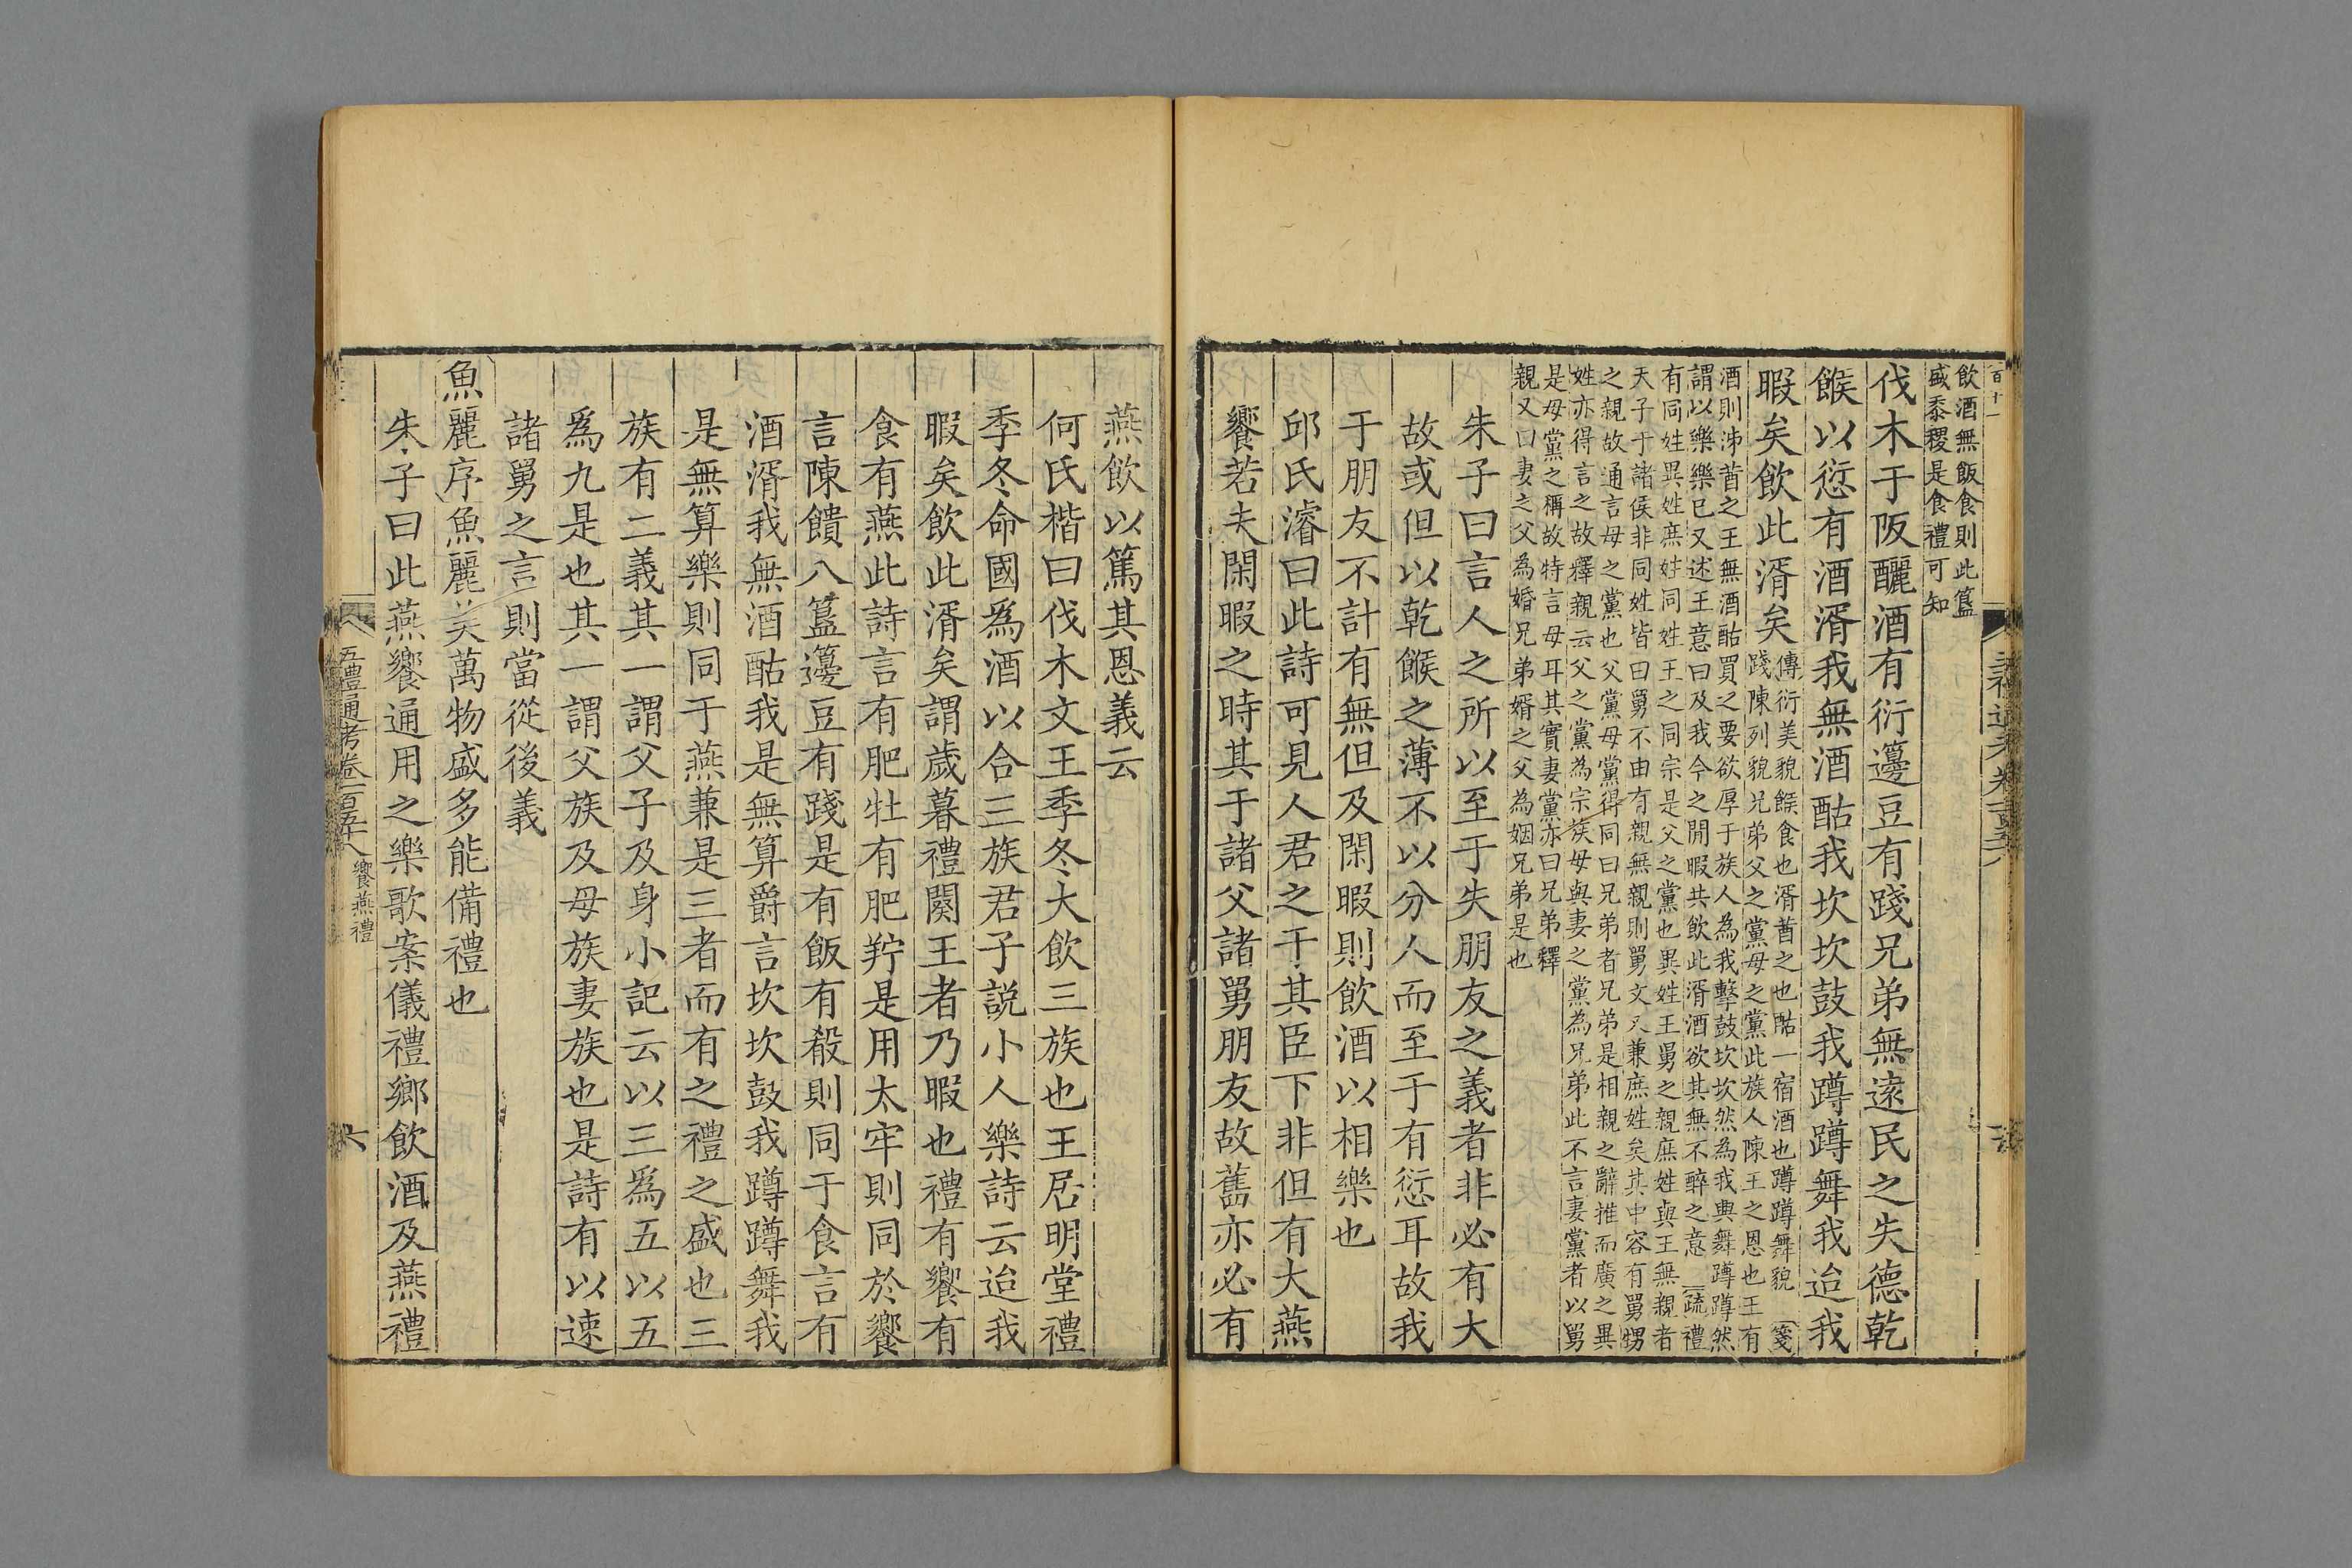 飲酒無飯食則此簋
盛黍稷是食禮可知
伐木于阪釃酒有衍籩豆有踐兄弟無遠民之失德乾
餱以愆有酒湑我無酒酤我坎坎鼓我蹲蹲舞我迨我
暇矣飲此湑矣
傳衍美貌餱食也湑莤之也酤一宿酒也蹲蹲舞貌 箋
踐陳列貌兄弟父之黨母之黨此族人陳王之恩也王有
酒則泲莤之王無酒酤買之要欲厚于族人為我擊鼓坎坎然為我興舞蹲蹲然
謂以樂樂已又述王意曰及我今之閒暇共飲此湑酒欲其無不醉之意 疏禮
有同姓異姓庶姓同姓王之同宗是父之黨也異姓王舅之親庶姓與王無親者
天子于諸侯非同姓皆曰舅不由有親無親則舅文又兼庶姓矣其中容有舅甥
之親故通言母之黨也父黨母黨得同曰兄弟者兄弟是相親之辭推而廣之異
姓亦得言之故釋親云父之黨為宗族母與妻之黨為兄弟此不言妻黨者以舅
是母黨之稱故特言母耳其實妻黨亦曰兄弟釋
親又曰妻之父為婚兄弟婿之父為姻兄弟是也
朱子曰言人之所以至于失朋友之義者非必有大
故或但以乾餱之薄不以分人而至于有愆耳故我
于朋友不計有無但及閑暇則飲酒以相樂也
邱氏濬曰此詩可見人君之于其臣下非但有大燕
饗若夫閑暇之時其于諸父諸舅朋友故舊亦必有
燕飲以篤其恩義云
何氏楷曰伐木文王季冬大飲三族也王居明堂禮
季冬命國爲酒以合三族君子説小人樂詩云迨我
暇矣飲此湑矣謂歲暮禮闋王者乃暇也禮有饗有
食有燕此詩言有肥牡有肥羜是用太牢則同於饗
言陳饋八簋籩豆有踐是有飯有殽則同于食言有
酒湑我無酒酤我是無算爵言坎坎鼓我蹲蹲舞我
是無算樂則同于燕兼是三者而有之禮之盛也三
族有二義其一謂父子及身小記云以三爲五以五
爲九是也其一謂父族及母族妻族也是詩有以速
諸舅之言則當從後義
魚麗序魚麗美萬物盛多能備禮也
朱子曰此燕饗通用之樂歌案儀禮鄉飲酒及燕禮
五禮通考卷一百五十八 饗燕禮
六